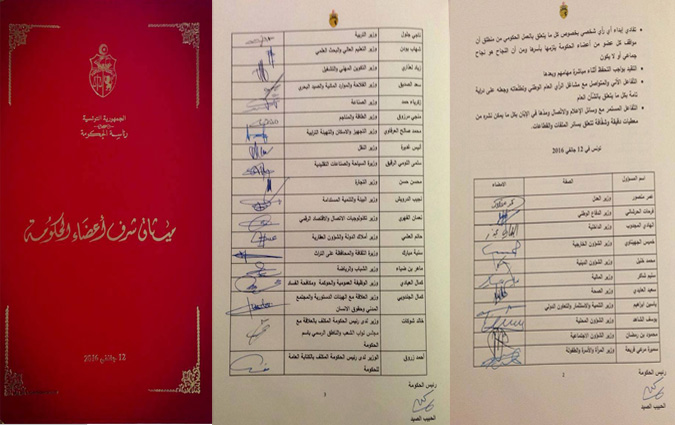 الجمهورية التونسية
رئاسة الحكومة
ميثاق شرف أعضاء الحكومة
12 جانفي 2016
ناجي جلول وزير التربية
شهاب بودن وزير التعليم العالي والبحث العلمي
زياد لعذاري وزير التكوين المهني والتشغيل
سعد الصديق وزير الفلاحة والموارد المائية والصيد البحري
زكرياء حمد وزير الصناعة
منجي مرزوق وزير الطاقة والمناجم
محمد صالح العرفاوي وزير التجهيز والإسكان والتهيئة الترابية
أنيس غديرة وزير النقل
سلمى اللومي الرقيق وزيرة السياحة والصناعات التقليدية
محسن حسن وزير التجارة
نجيب الدرويش وزير البيئة والتنمية المستدامة
نعمان الفهري وزير تكنولوجيات الاتصال والاقتصاد الرقمي
حاتم العشي وزير أملاك الدولة والشؤون العقارية
سنية مبارك وزيرة الثقافة والمحافظة على التراث
ماهر بن ضياء وزير الشباب والرياضة
كمال العيادي وزير الوظيفة العمومية والحوكمة ومكافحة الفساد
كمال الجندوبي وزير العلاقة مع الهيئات الدستورية والمجتمع
المدني وحقوق الانسان
خالد شوكات وزير لدى رئيس الحكومة المكلف بالعلاقة مع
مجلس نواب الشعب والناطق الرسمي باسم
الحكومة
أحمد زروق الوزير لدى رئيس الحكومة المكلف بالكتابة العامة
للحكومة
رئيس الحكومة
الحبيب الصيد
3
• تفادي إبداء أي رأي شخصي بخصوص كل ما يتعلق بالعمل الحكومي من منطلق أن
موقف كل عضو من أعضاء الحكومة يلزمها بأسرها ومن أن النجاح هو نجاح
جماعي أو لا يكون
• التقيد بواجب التحفظ أثناء مباشرة مهامهم وبعدها
• التفاعل الآني والمتواصل مع مشاغل الرأي العام الوطني وتطلعاته وجعله على دراية
تامة بكل ما يتعلق بالشأن العام
• التفاعل المستمر مع وسائل الإعلام والاتصال ومدها في الإبان بكل ما يمكن نشره من
معطيات دقيقة وشفافة تتعلق بسائر الملفات والقطاعات.
تونس في 12 جانفي 2016
اسم المسؤول الصفة الامضاء
عمر منصور وزير العدل
فرحات الحرشاني وزير الدفاع الوطني
الهادي المجدوب وزير الداخلية
خميس الجهيناوي وزير الشؤون الخارجية
محمد خليل وزير الشؤون الدينية
سليم شاكر وزير المالية
سعيد العايدي وزير الصحة
ياسين ابراهيم وزير التنمية والاستثمار والتعاون الدولي
يوسف الشاهد وزير الشؤون المحلية
محمود بن رمضان وزير الشؤون الاجتماعية
سميرة مرعي فريعة وزير المرأة والأسرة والطفولة
2
رئيس الحكومة
الحبيب الصيد